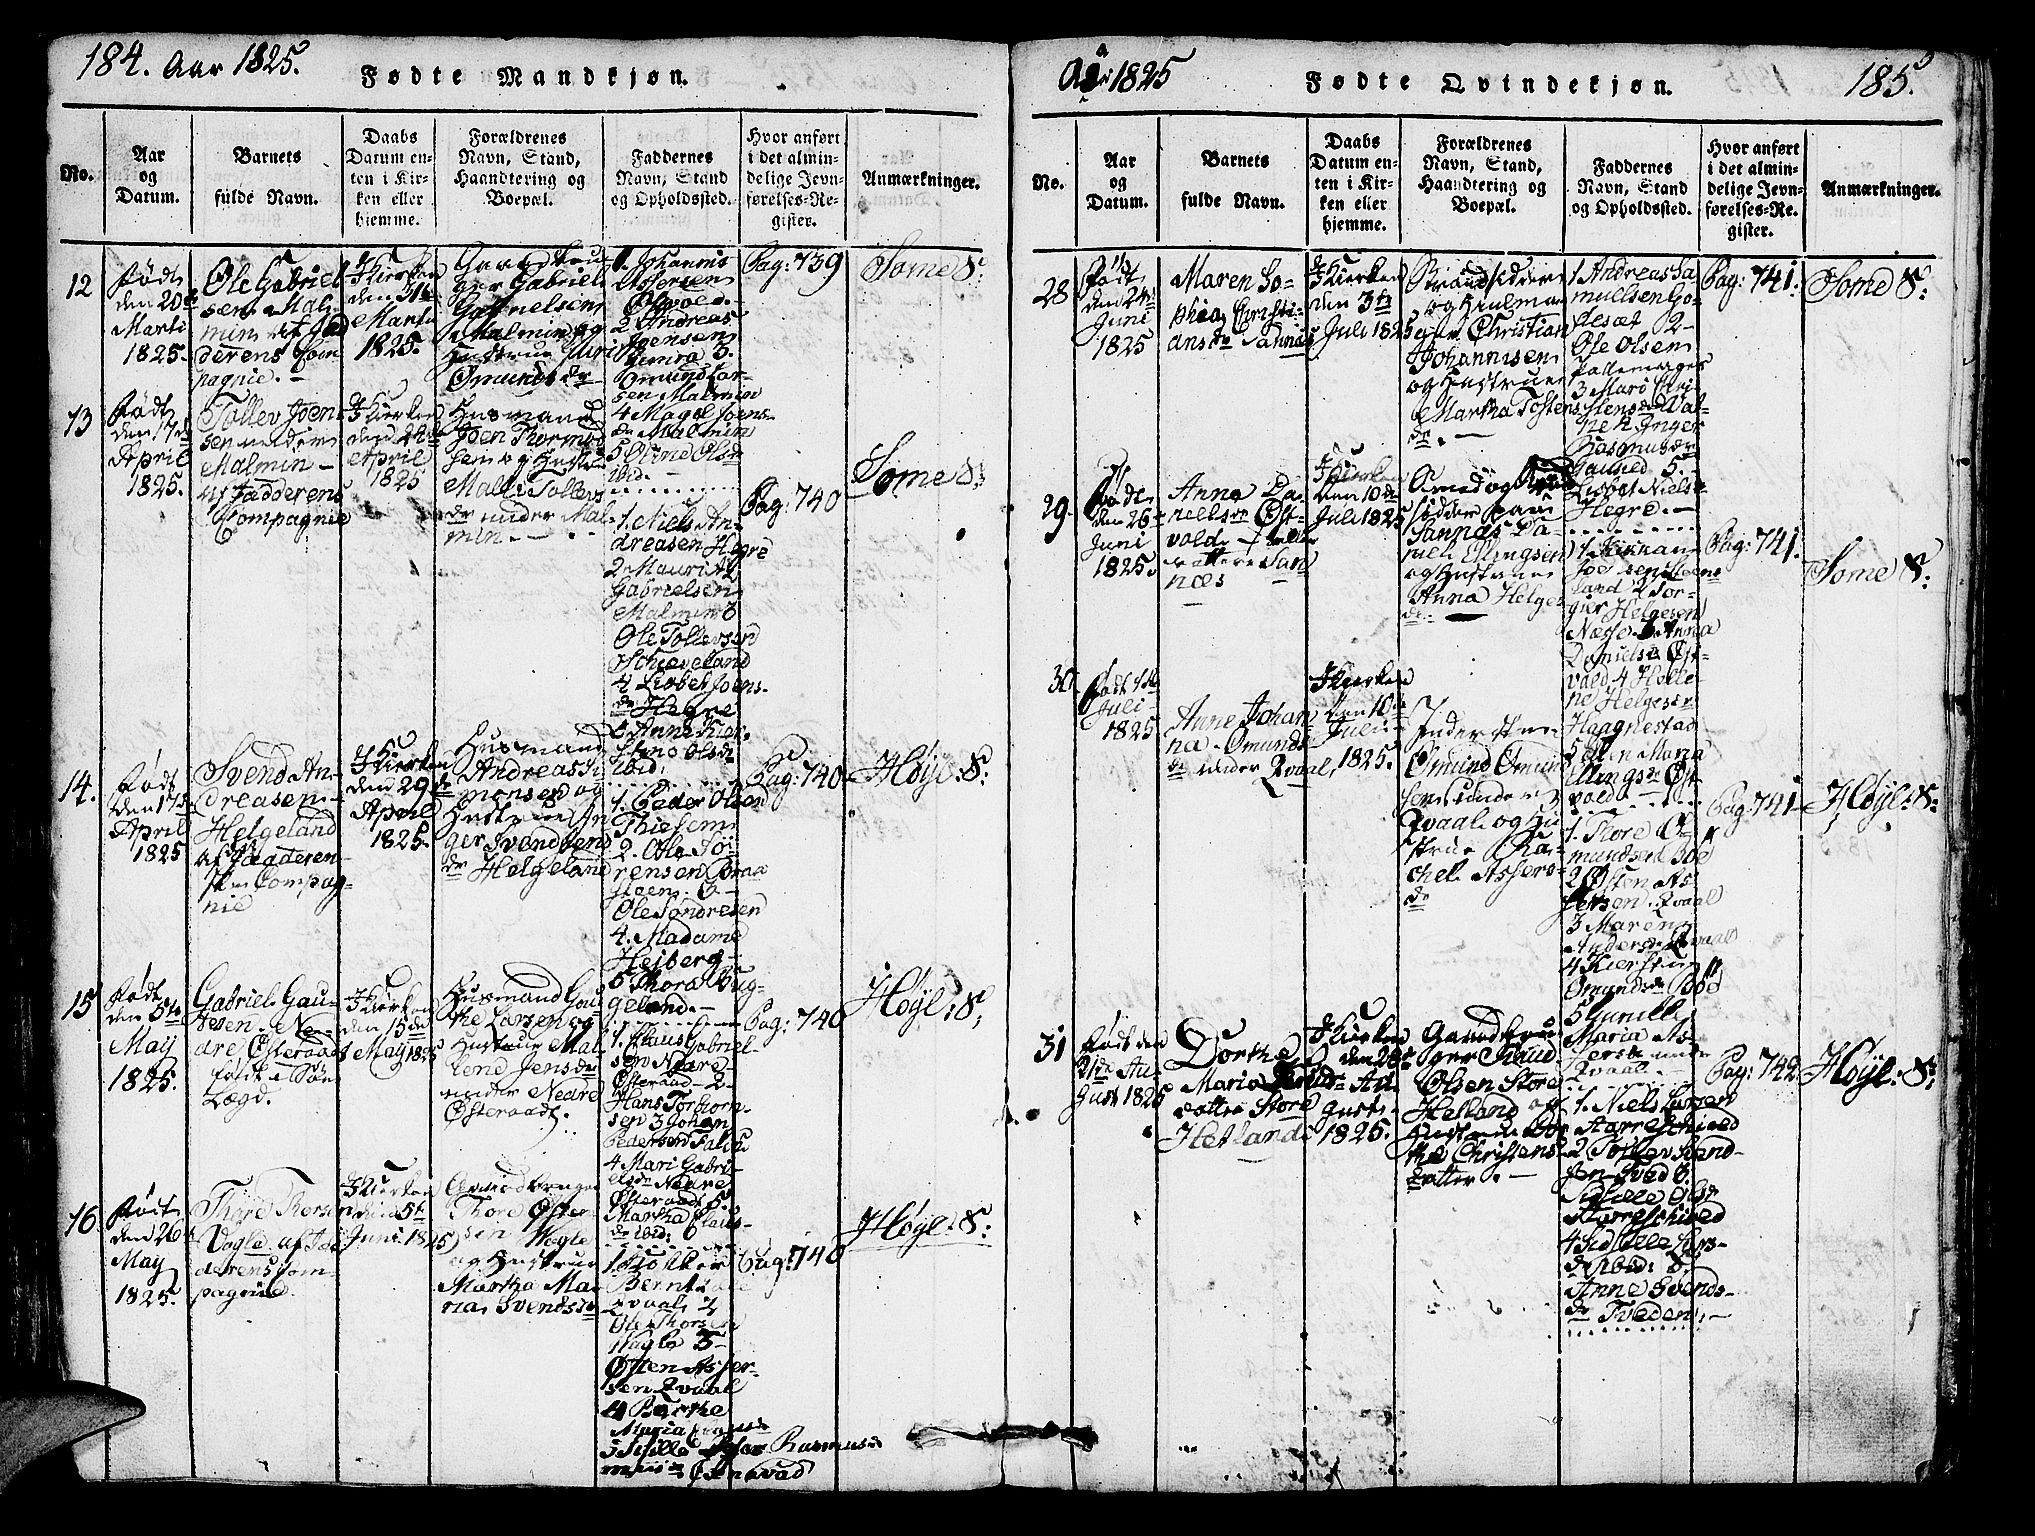 184. Aar 1825.
Fødte Mandkjøn.
No.
Aar
og
Datum.
Barnets
fulde Navn.
Daabs
Datum en-
ten i Kir-
ken eller
hjemme.
Forældrenes
Navn, Stand,
Haandtering og
Boepæl.
Faddernes
Navn, Stand
og Opholdssted.
Hvor anført
i det almin-
delige Jevn-
førelses-Re-
gister.
Anmærkninger.
12
Født
den 20de
Marti
1825.
Ole Gabriel
sen Mal-
min af Jæd
derens Com-
pagnie.-
I Kierken
den 31te
Marti
1825.
Gaardbru
ger Gabriel
Gabrielsen
Malmin og
Hustrue Guri
Omunds dr
1. Johannis
Assersen
Osvoed.
2 Andreas
Joensen
Jemra 3.
Omund Lar-
sen Malmin
4 Magel Joens
dr Malmin
5 Olene Olsdr
ibid.-
Pag: 739
Some S:
13
Født
den 17de
April
1825.
Tollev Joen
sen under
Malmin-
af Jædderens
Compagnie
I Kierken
den 22de
April
1825
Husmand
Joen Thormod
sen og Hustru
Malli Tollevs
dr under Mal-
min.-
1. Niels An-
dreasen Hegre
2 Mauritz
Gabrielsen
Malmin 3
Ole Tollevsen
Schieveland
4 Lisbet Joens-
dr Hegre
5 Anne Kier-
stine Olsdr
ibid;
Pag: 740
Some S:
14.
Født
den 17de
April
1825
Svend An-
dreasen-
Helgeland
af Jædderen-
ske Compag-
nie
I Kierken
den 29de
April
1825.
Husmand
Andreas Si-
monsen og
Hustrue In
ger Svendsens
dr Helgeland
1. Peder Olsen
Thiesem
2. Ole Sø-
rensen Braa
steen. 3-
Ole Sondresen
4. Madame
Hejberg-
5 Thora Bug-
geland.-
Pag: 740
Høyl: S:
15
Født
den 5te
May
1825.
Gabriel Gau-
tesen. Ne-
dre Østeraadt
født i Søe
Lægd.
I Kierken
den 15de
May 1825
Husmand Gou
the Larsen og
Hustrue Mal-
lend Jensdr
under Nedre
Østeraadt.
1. Claus Gabriel-
sen Nedre
Østeraad-2-
Hans Torbiorn-
sen 3 Johan
Pedersen Falch
4 Mari Gabri-
elsdr Nedre
Østeraadt 5
Martha Claus-
dr ibid; 6
Pag: 740
Høyl: S;
16
Født
den 26
May
1825.
Thore Thorsen
Vagle af Jæd
derens Com-
pagnie.
I Kierken
den 5te
Juni 1825
Thore Østen-
sen Vagle
og Hustrue
Martha Ma-
ria Svendsdr
Qvaal 2
Ole Thorsen
Vagle 3-
Østen Asser-
sen Qvaal
4 Berthe
Maria
Pag: 740
Høyl: S:
Aar 1825
Fødte Qvindekjøn.
185.
No.
Aar
og
Datum.
Barnets
fulde Navn.
Daabs
Datum en-
ten i Kir-
ken eller
hjemme.
Forældrenes
Navn, Stand,
Haandtering og
Boepæl.
Faddernes
Navn, Stand
og Opholdssted.
Hvor anført
i det almin-
delige Jevn-
førelses-Re-
gister.
Anmærkninger.
28
Født
den 24de
Juni
1825
Maren So-
phia Christi-
ansdr Sannæs
I Kierken
den 3te
Juli 1825
Strandsidder
og Hiulma
ger Christian
Johannisen
og Hustrue
Martha Tostens
dr.-
1 Andreas Sa
muelsen Go-
desæt 2-
Ole Olsen
3 Mari
Inger
Rasmusdr
Gausel 5-
Lisbet Niels
Hegre.-
Pag: 741.
Some S:
29.
Født
den 26
Juni
1825.
Anna Da-
nielsdr Øst-
vold
datter San
næs
I Kierken
den 10de
Juli 1825
sidder paa
Sannæs Da-
niel Ellingsen
og Hustrue
Anna Helges
dr.
land 2 Tor-
gier Helgesen
Næsse 3 Anna
Danielsdr Øst-
vold 4 Helle-
ne Helgesdr
Haagnestad
5 Ellen Maria
Ellingsdr Øst
vold-
Pag: 741.
Some S:
30
Født 1te
Juli
1825
Anne Johan
na Omunds-
dr under Qvaal
I Kierken
den 10de
Juli
1825.
Inderstene
Omund Omund
sen under
Qvaal og Hu
strue Ra-
chel Assers-
dr
1. Tore O-
mundsen Boe
2 Østen As-
sersen Qvaal
3 Maren
Andersdr Qvaal
4 Kierstin
Omundsdr Boe
5 Gunille
Maria As-
sersdr under
Qvaal.-
Pag: 741
Høyl: S:
31
Født den
21de Au-
gust 1825
Dorthe
Maria Knuds
datter Store
Hetland
I Kierken
den 28de
Au-
gust
1825.
Gaardbru
ger Knud
Olsen Store
Hetland og
Hustrue Dor
the Christens
datter.-
1. Niels Larsen
2 Tollev Svend-
sen Tved 3.
Sidselle Olsdr
4 Sidselle Lars-
dr ibid: 5.
Anne Svends-
dr Tveden.-
Pag: 742.
Høyl: S: